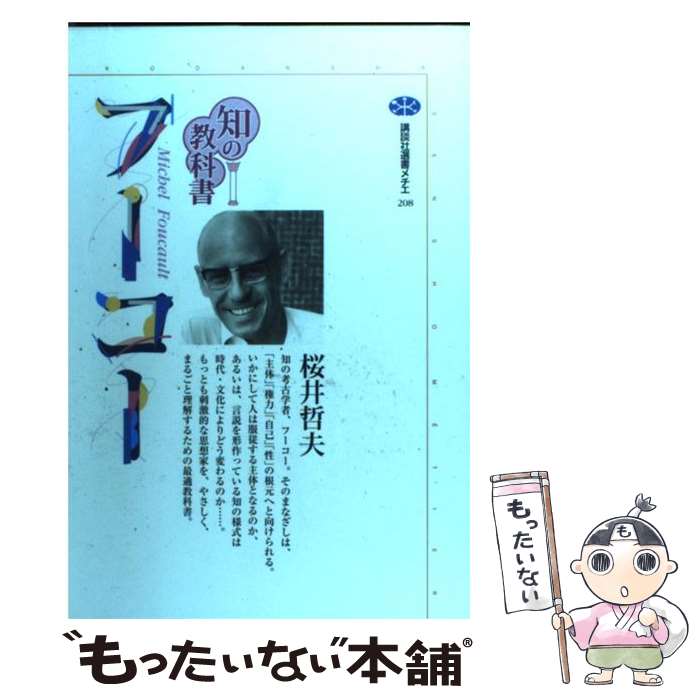 フーコー
Michel Foucault
知の
教科書
講談社選書メチエ
208
桜井哲夫
知の考古学者、フーコー。そのまなざしは、
「主体」「権力」「自己」「性」の根元へと向けられる。
いかにして人は服従する主体となるのか、
あるいは、言説を形作っている知の様式は
時代・文化によりどう変わるのか……。
もっとも刺激的な思想家を、やさしく、
まるごと理解するための最適教科書。
もったいない
も
“もったいない”本舗®